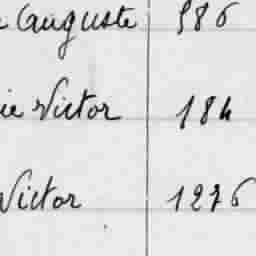 Auguste 986
ie Victor 184
Victor 1276